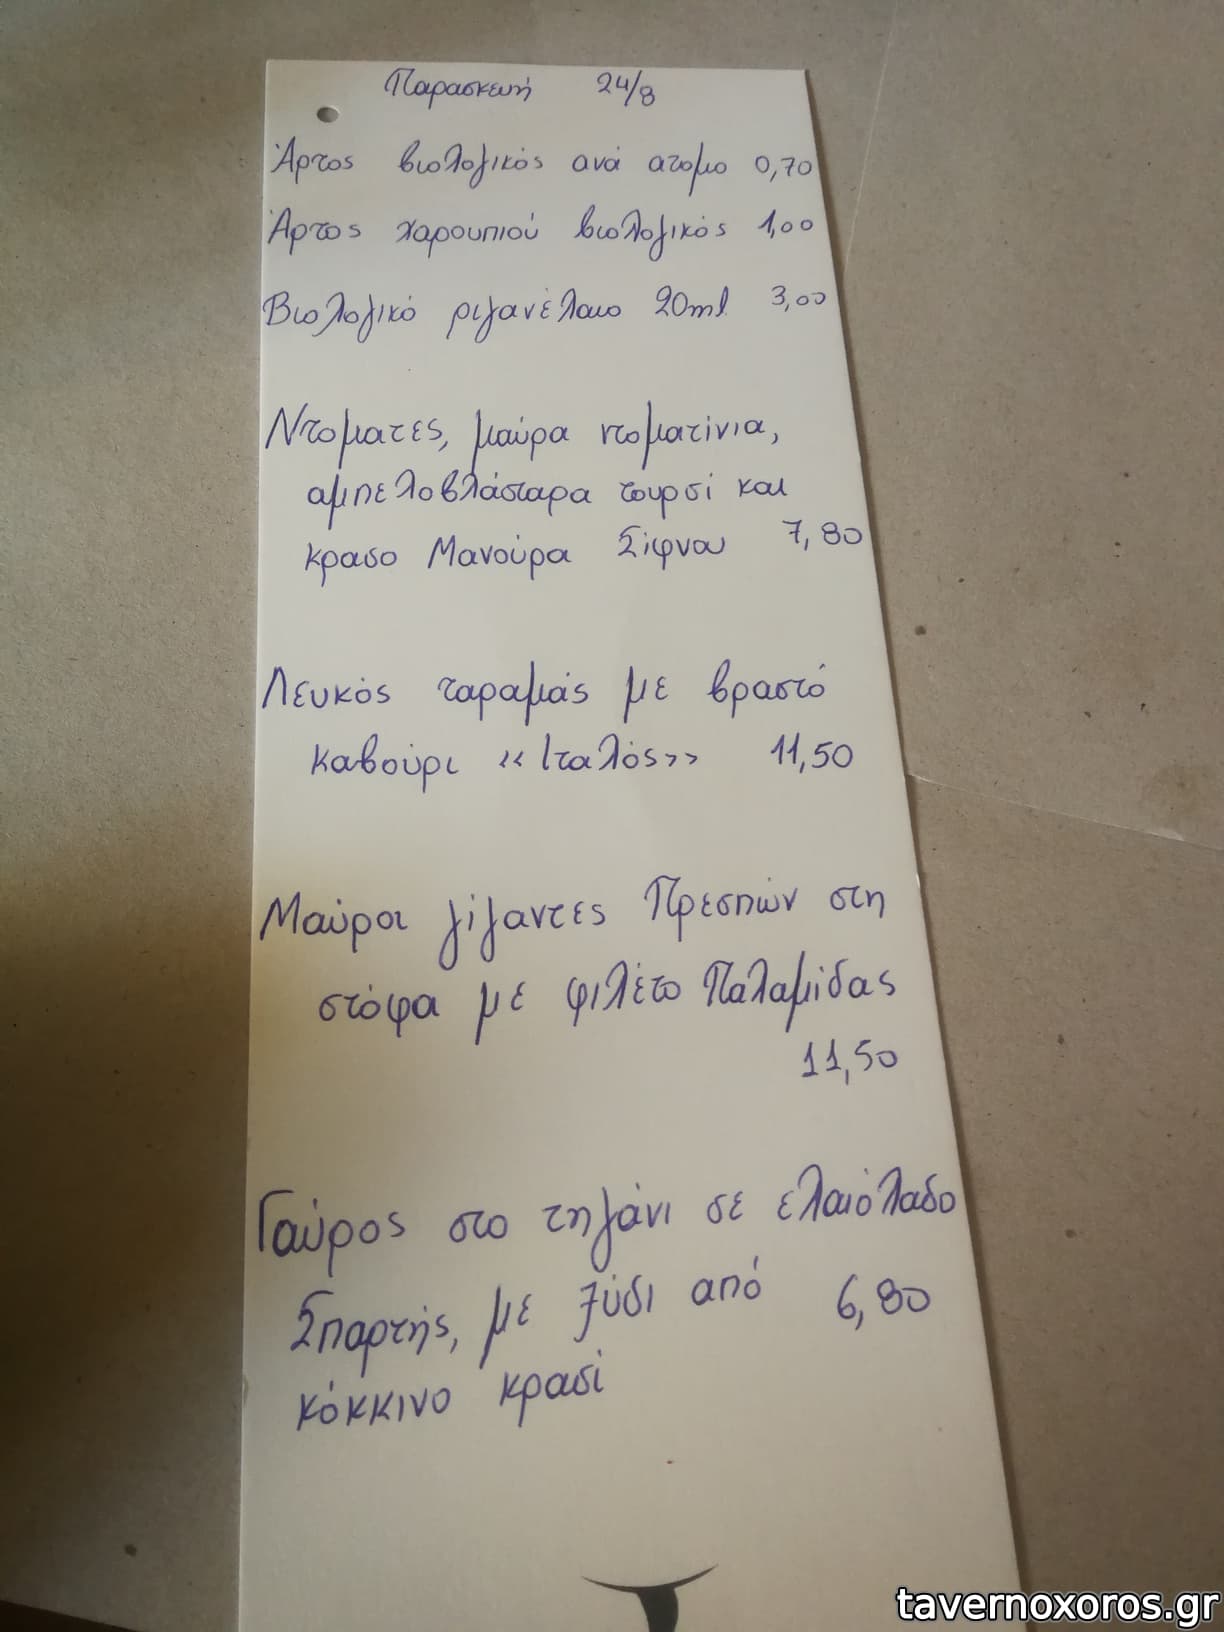 Παρασκευή 24/8
Άρτος βιολογικός ανά ατομο 0,70
Άρτος χαρουπιού βιολογικός 1,00
Βιολογικό ριγανέλαιο 20ml 3,00
Ντοματες, μαύρα ντοματίνια,
αμπελοβλάσταρα τουρσί και
κρασο Μανούρα Σίφνου 7,80
Λευκός ταραμάς με βραστό
καβούρι «Ιταλός» 11,50
Μαύροι γίγαντες Πρεσπών στη
στόφα με φιλέτο Παλαμίδας
11,50
Γαύρος στο τηγάνι σε ελαιόλαδο
Σπαρτής, με ξύδι από 6,80
κόκκινο κρασί
tavernoxoros.gr